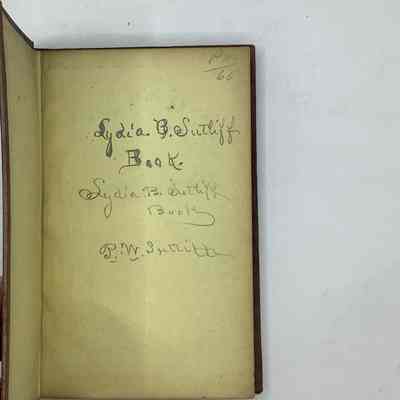 66
Lydia B. Sutliff
Book.
Lydia B. Sutliff
Book
P. W.